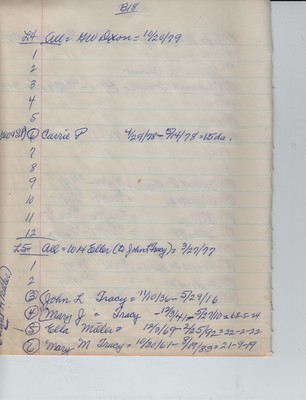 B18
L4 All = H W Dixon = 10/20/79
1
2
3
4
5
6 Carrie P 4/29/78 - 5/14/78 = 15 da.
7
8
9
10
11
12
L5 All = W H Eller (To John Tracy) = 3/27/77
1
2
3 John L Tracy = 11/10/36 - 5/29/16
4 Mary J " Tracy - 12/3/41 - 5/27/10 = 68-5-24
5 Ella Miller = 12/3/69 - 2/25/92 = 22-2-22
6 Mary M Tracy = 10/20/61 - 8/19/83 = 21-9-19